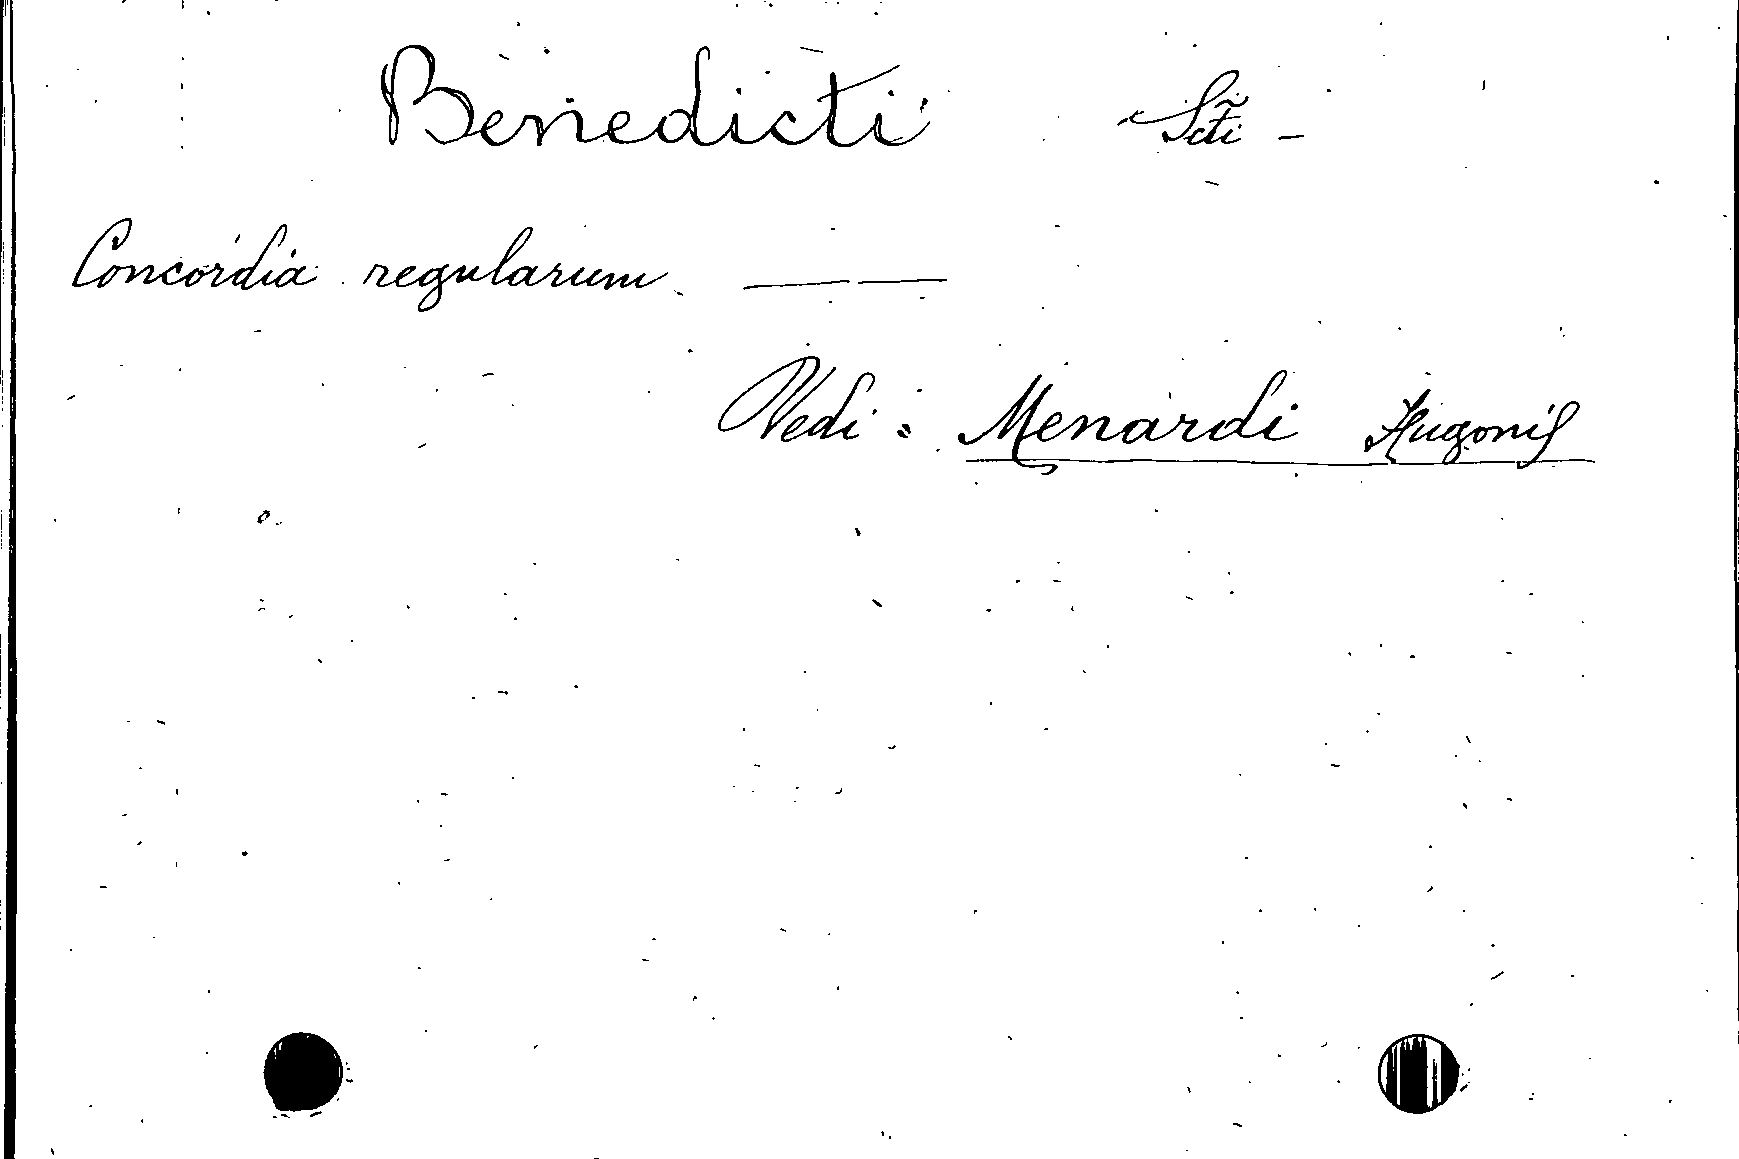 Benedicti Sctĩ -
Concordia regularum. ——
Vedi: Menardi Hugonis